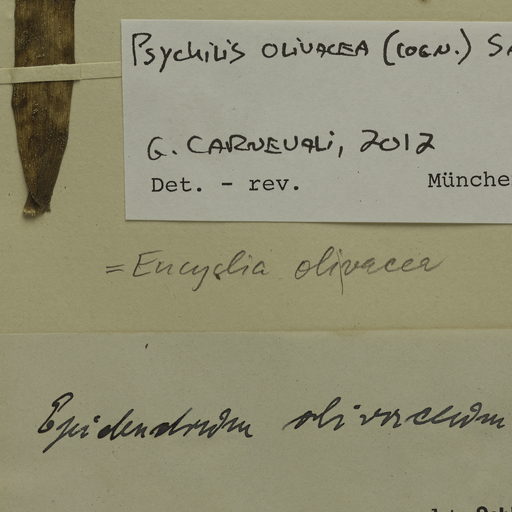 Psychilis olivacea (Cogn.) Sa
G. Carnevali, 2012
Det. - rev. Münche
= Encyclia olivacea
Epidendrum olivaceum